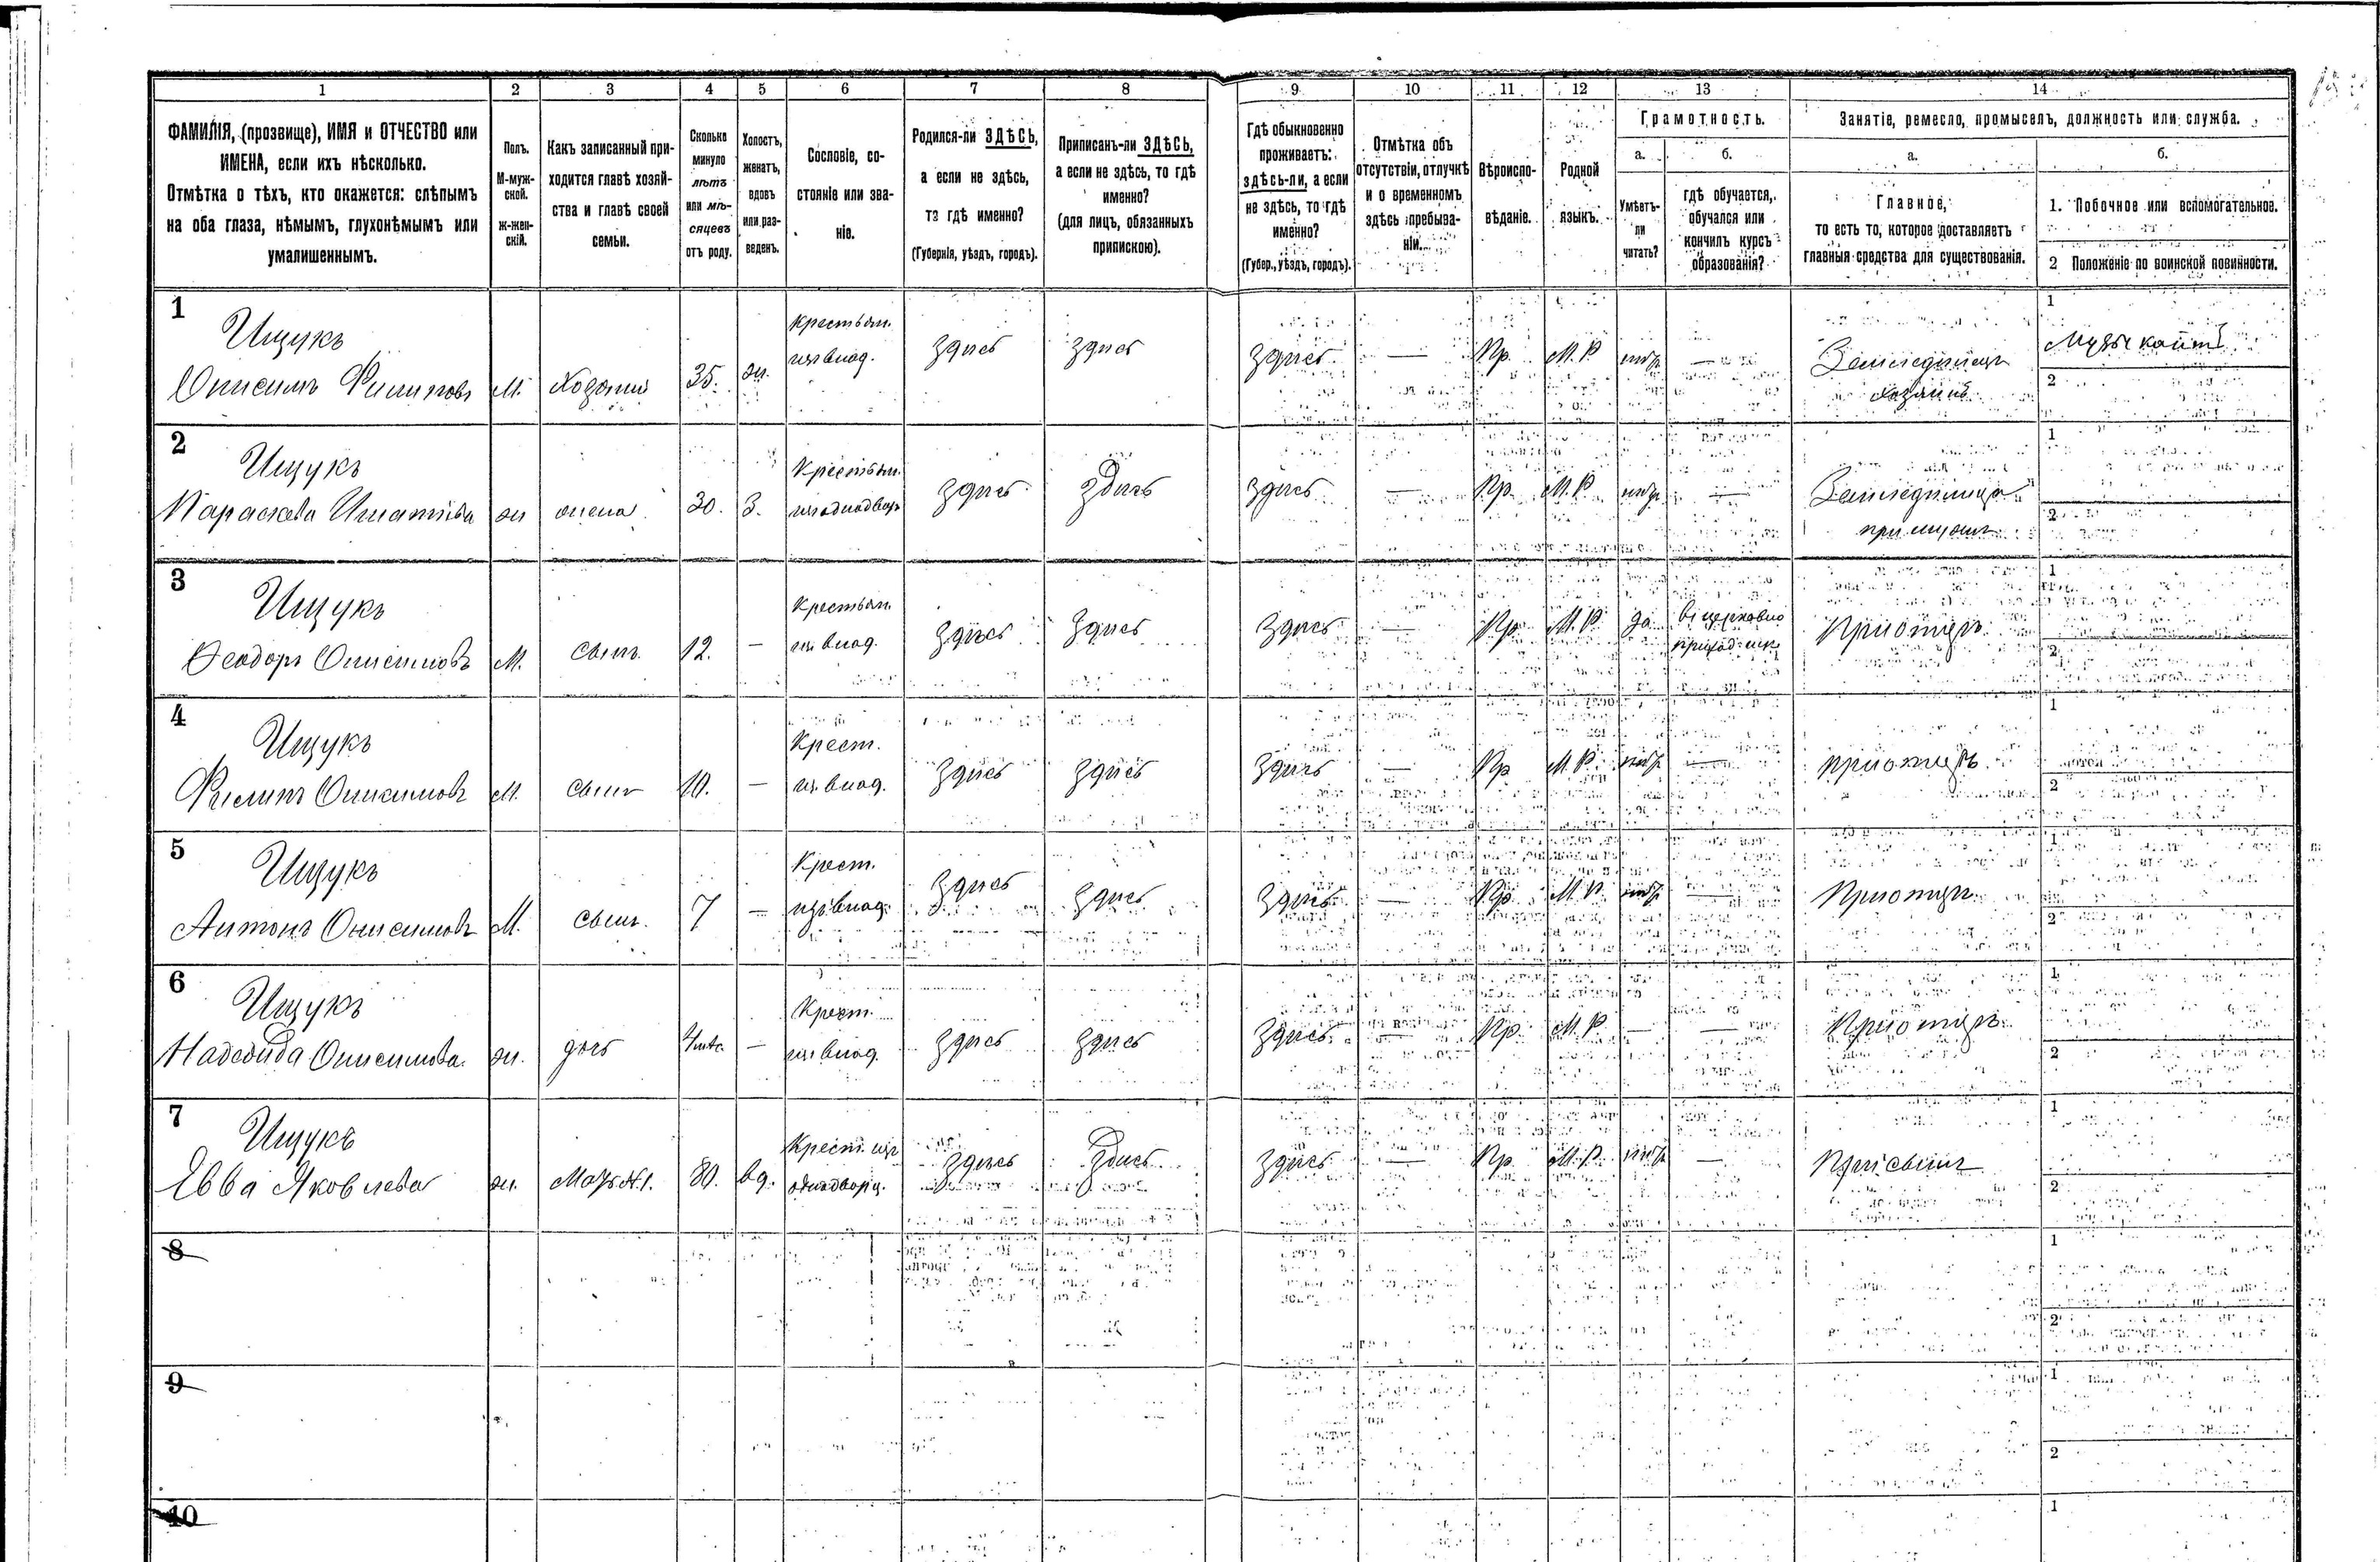 1 2 3 4 5 6 7 8 9 10 11 12 13 14
ФАМИЛІЯ, (прозвище), ИМЯ и ОТЧЕСТВО или
ИМЕНА, если ихъ нѣсколько.
Отмѣтка о тѣхъ, кто окажется: слѣпымъ
на оба глаза, нѣмымъ, глухонѣмымъ или
умалишеннымъ.
Полъ.
М-муж-
ской.
ж-жен-
скій.
Какъ записанный при-
ходится главѣ хозяй-
ства и главѣ своей
семьи.
Сколько
минуло
лѣтъ
или мѣ-
сяцевъ
отъ роду.
Холостъ,
женатъ,
вдовъ
или раз-
веденъ.
Сословіе, со-
стояніе или зва-
ніе.
Родился-ли ЗДѢСЬ,
а если не здѣсь,
то гдѣ именно?
(Губернія, уѣздъ, городъ).
Приписанъ-ли ЗДѢСЬ,
а если не здѣсь, то гдѣ
именно?
(для лицъ, обязанныхъ
припискою).
Гдѣ обыкновенно
проживаетъ:
здѣсь-ли, а если
не здѣсь, то гдѣ
именно?
(Губер., уѣздъ, городъ).
Отмѣтка объ
отсутствіи, отлучкѣ
и о временномъ
здѣсь пребыва-
ніи.
Вѣроиспо-
вѣданіе.
Родной
языкъ.
Грамотность.
а.
Умѣетъ-
ли
читать?
б.
гдѣ обучается,
обучался или
кончилъ курсъ
образованія?
Занятіе, ремесло, промыселъ, должность или служба.
а.
Главное,
то есть то, которое доставляетъ
главныя средства для существованія.
б.
1. Побочное или вспомогательное.
2 Положеніе по воинской повинности.
1
Ищукъ Крестьян. здись здись здись — Пр. М. Р нѣтъ — Земледѣлецъ 1 Музыкантъ
Онисимъ Филиповъ М. Хозяинъ 35. ж. из внод. хозяинъ 2
2
Ищукъ Крестьян. здись здись здись — Пр. М. Р нѣтъ — Земледѣлица 1
Параскева Игнатіева ж жена 30. З. из однодвор. при мужѣ 2
3
Ищукъ Крестьян. здѣсь здись здись — Пр. М. Р. да въ церковно При отцѣ 1
Феодоръ Онисимовъ М. сынъ 12. — из внод. приход. шк. 2
4
Ищукъ Крест. здись здись здись — Пр М. Р. нѣтъ — при отцѣ 1
Филипъ Онисимовъ М. сынъ 10. — из внод. 2
5
Ищукъ Крест. здись здись здись — Пр М. Р. нѣтъ — При отцѣ 1
Антонъ Онисимовъ М. сынъ. 7 — изъ внод. 2
6
Ищукъ Крест. здись здись здись — Пр. М. Р. — — При отцѣ 1
Надежда Онисимова. ж. дочь — из внод. 2
7
Ищукъ Крест. из здѣсь здись здись — Пр. М. Р. нѣтъ — При сынѣ 1
Евва Яковлева ж. Мать №1. 80. вд. однодворц. 2
8
1
2
9
1
2
10
1